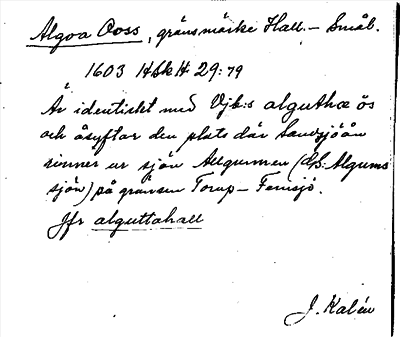 Algoa Ooss, gränsmärke Hall. - Smål.
1603 HSkH 29:79
Är identiskt med Vjb:s alguthæ ös
och åsyftar den plats där Sandsjöån
rinner ur sjön Allgunnen (GS: Algums
sjön) på gränsen Torup - Femsjö.
Jfr alguttahall
J. Kalén